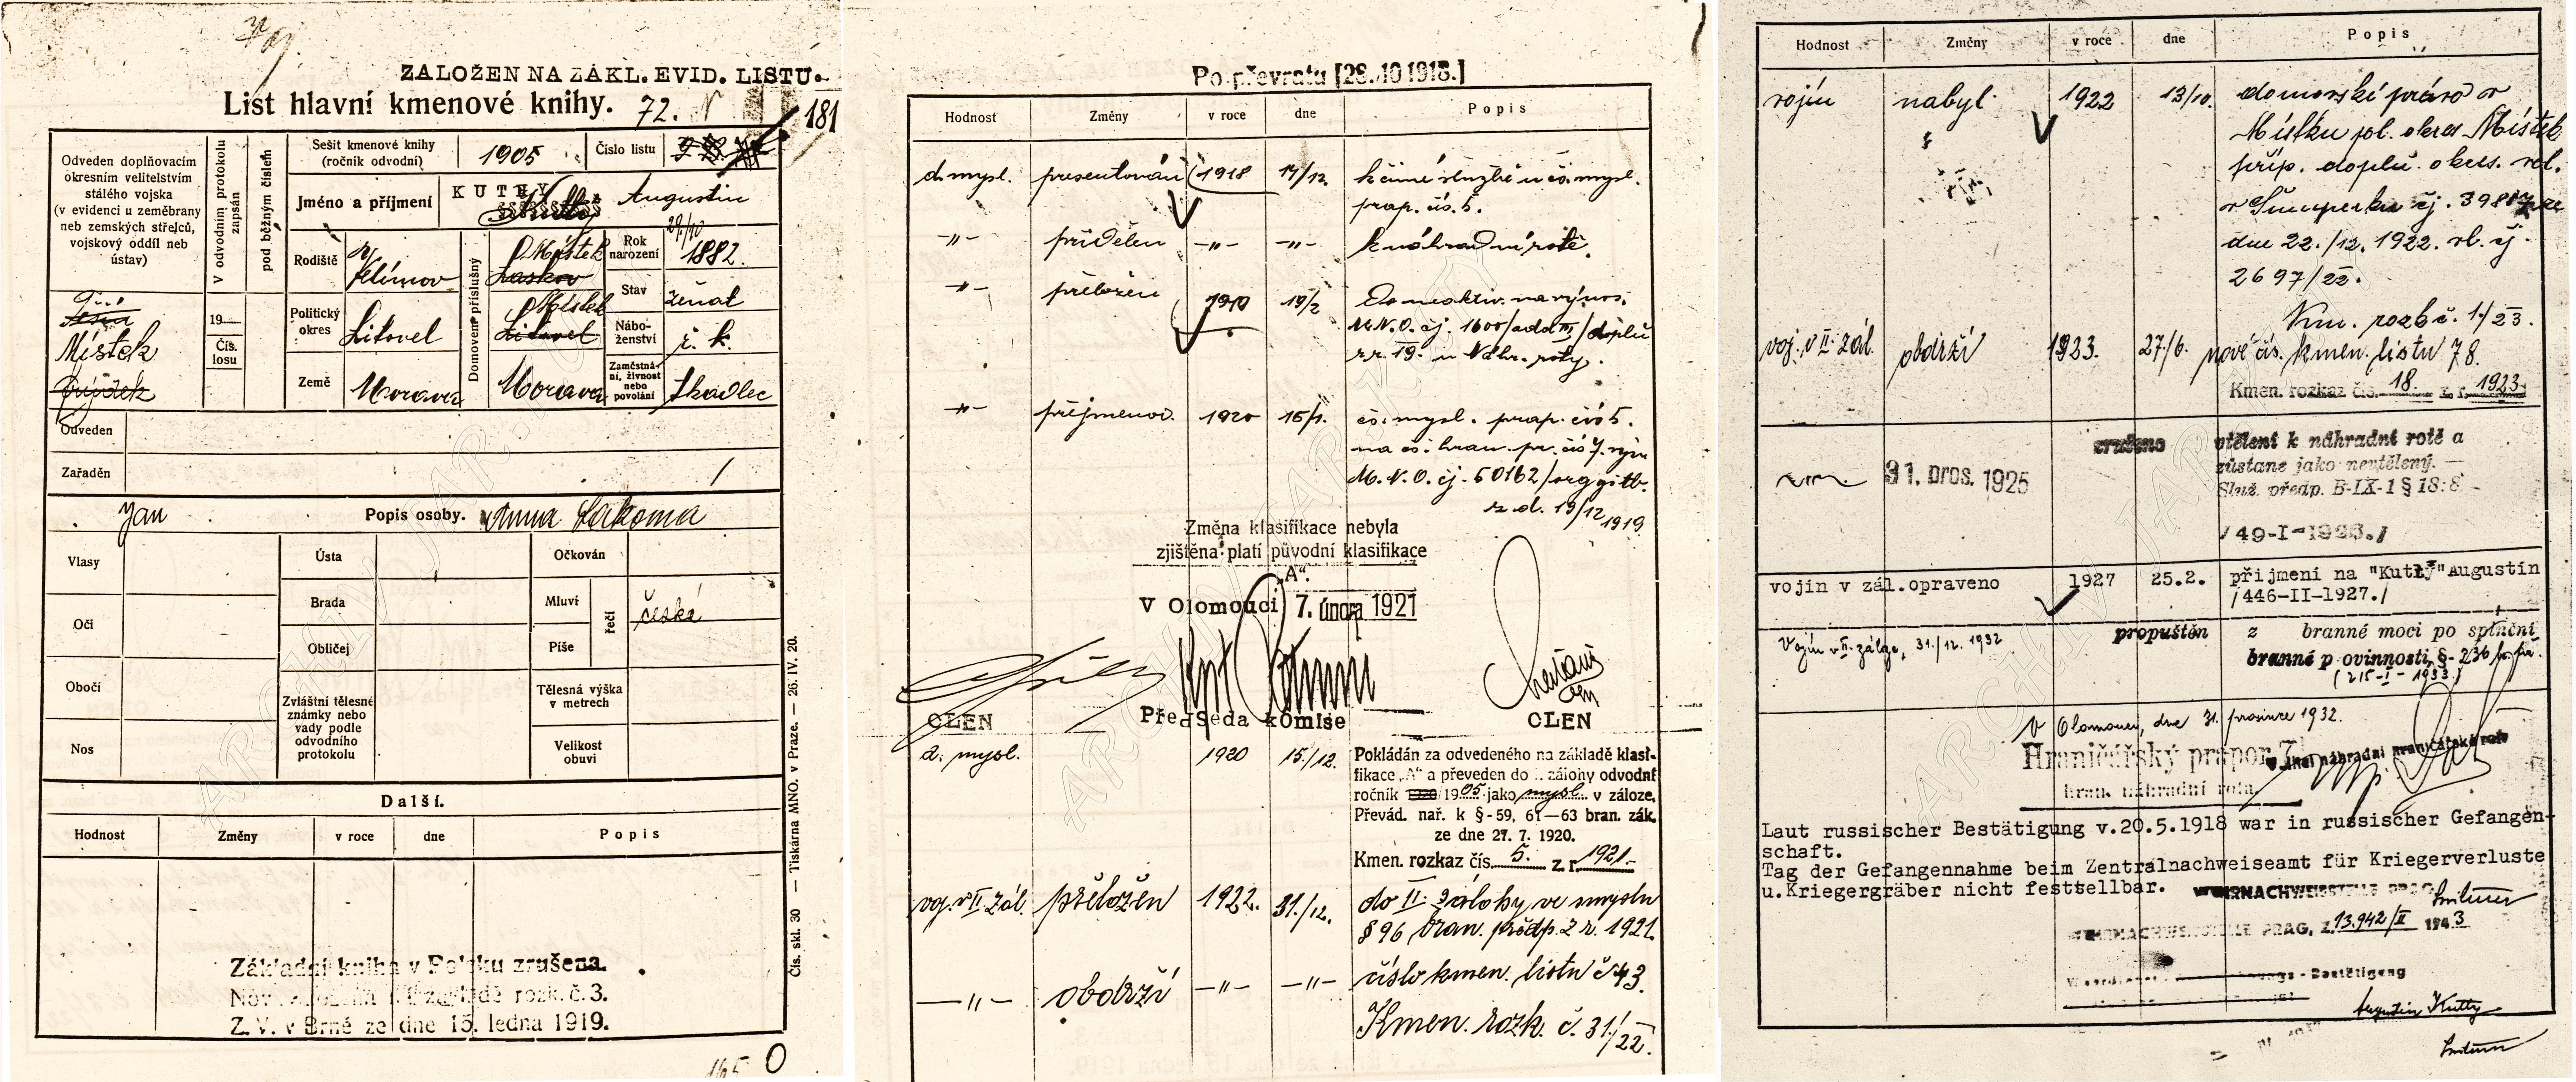 ZALOŽEN NA ZÁKL. EVID. LISTU.
List hlavní kmenové knihy. 72.
181
Odveden doplňovacím
okresním velitelstvím
stálého vojska
(v evidenci u zeměbrany
neb zemských střelců,
vojskový oddíl neb
ústav)
V odvodním protokolu
zapsán
pod běžným číslem
Sešit kmenové knihy
(ročník odvodní)
1905
Číslo listu
Jméno a příjmení
KUTHY
Augustin
Rodiště
Jelímov
Domovem příslušný
Místek
Laskov
Rok
narození
29/10
1882.
Stav
ženat
Politický
okres
Litovel
Místek
Litovel
Nábo-
ženství
ř. k.
Země
Morava
Morava
Zaměstná-
ní, živnost
nebo
povolání
tkadlec
19
Čís.
losu
Místek
Odveden
Zařaděn
Jan
Popis osoby.
Anna
Vlasy
Ústa
Očkován
Brada
Mluví
řeči
česká
Oči
Obličej
Píše
Obočí
Zvláštní tělesné
známky nebo
vady podle
odvodního
protokolu
Tělesná výška
v metrech
Nos
Velikost
obuvi
Další.
Hodnost
Změny
v roce
dne
Popis
Základní kniha v Polsku zrušena.
základě rozk. č. 3.
Z. V. v Brně ze dne 15. ledna 1919.
Čís. skl. 30 — Tiskárna MNO. v Praze. — 26. IV. 20.
Po převratu [28. 10 1918.]
Hodnost
Změny
v roce
dne
Popis
d. mysl.
presentován
1918
17/12.
k činné službě u čs. mysl.
prap. čís. 5.
-"-
přidělen
-"-
-"-
k náhradní rotě.
-"-
přeložen
1919
19/2
Do neaktiv. na výnos.
M.N.O. čj. 1600/
-"-
přejmenov.
1920
15/1.
čs. mysl. prap. čís 5.
na čs. hran. pr. čís 7. výn
M.N.O. čj. 50162/org
z d. 19/12 1919
Změna klasifikace nebyla
zjištěna platí původní klasifikace
"A".
V Olomouci 7. února 1921
ČLEN
Předseda komise
ČLEN
d. mysl.
1920
15/12.
Pokládán za odvedeného na základě klasi-
fikace „A" a převeden do I. zálohy odvodní
ročník 1905 jako mysl. v záloze.
Převád. nař. k §-59, 61—63 bran. zák.
ze dne 27. 7. 1920.
Kmen. rozkaz čís. 5. z r. 1921.
voj. v II. zál.
přeložen
1922.
31./12.
do II. zálohy ve smyslu
§ 96 bran. předp. z r. 1921.
-"-
obdrží
-"-
-"-
číslo kmen. listu č 43.
Kmen. rozk. č. 31/22.
Hodnost
Změny
v roce
dne
Popis
vojín
nabyl
1922
13/10.
domovské právo v
Místku pol. okres Místek
příp. doplň. okres. vel.
v Šumperku čj. 3981
dne 22./12. 1922. vl. čj.
2697/22.
Km. rozk č. 1/23.
voj. v II. zál.
obdrží
1923.
27./6.
nové čís. kmen. listu 78.
Kmen. rozkaz čís. 18. z r. 1923.
31. pros. 1925
zrušeno
vtělení k náhradní rotě a
zůstane jako nevtělený. —
Služ. předp. B-IX-1 § 18:8
/49-I-1926./
vojín v zál.
opraveno
1927
25.2.
příjmení na "Kuttý" Augustín
/446-II-1927./
Vojín v II. záloze, 31./12. 1932
propuštěn
z branné moci po splnění
branné povinnosti §- 236
(215-I-1933.)
V Olomouci, dne 31. prosince 1932.
Hraničářský prapor 7
hran. náhradní rota.
náhradní hraničářské roty
Laut russischer Bestätigung v.20.5.1918 war in russischer Gefangen-
schaft.
Tag der Gefangennahme beim Zentralnachweiseamt für Kriegerverluste
u.Kriegergräber nicht feststellbar.
WEHRNACHWEISSTELLE PRAG
PRAG, Z. 13.942/II 1943
-Bestätigung
Augustin Kutty